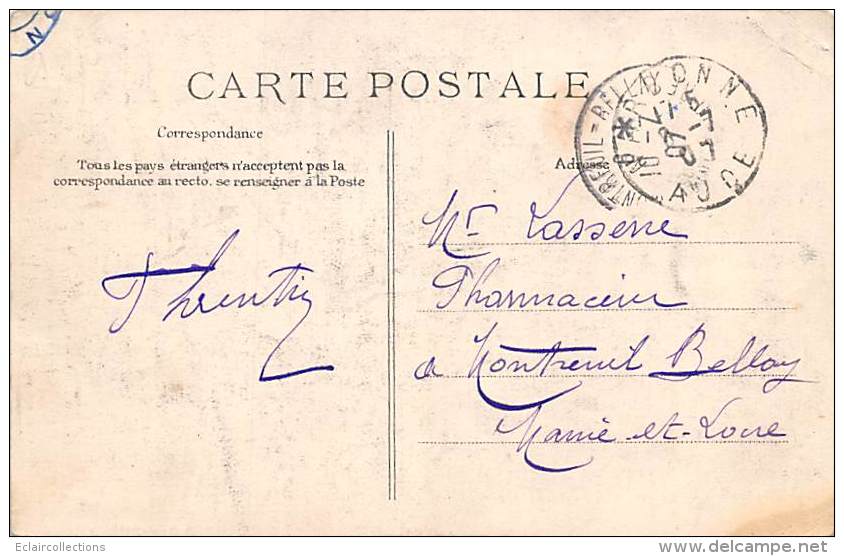 CARTE POSTALE
Correspondance
Tous les pays étrangers n'acceptent pas la
correspondance au recto. se renseigner à la Poste
Adresse
Mr Lasserre
Pharmacien
à Montreuil Bellay
Maine-et-Loire
AUDE
07
Eclaircollections
delcampe.net